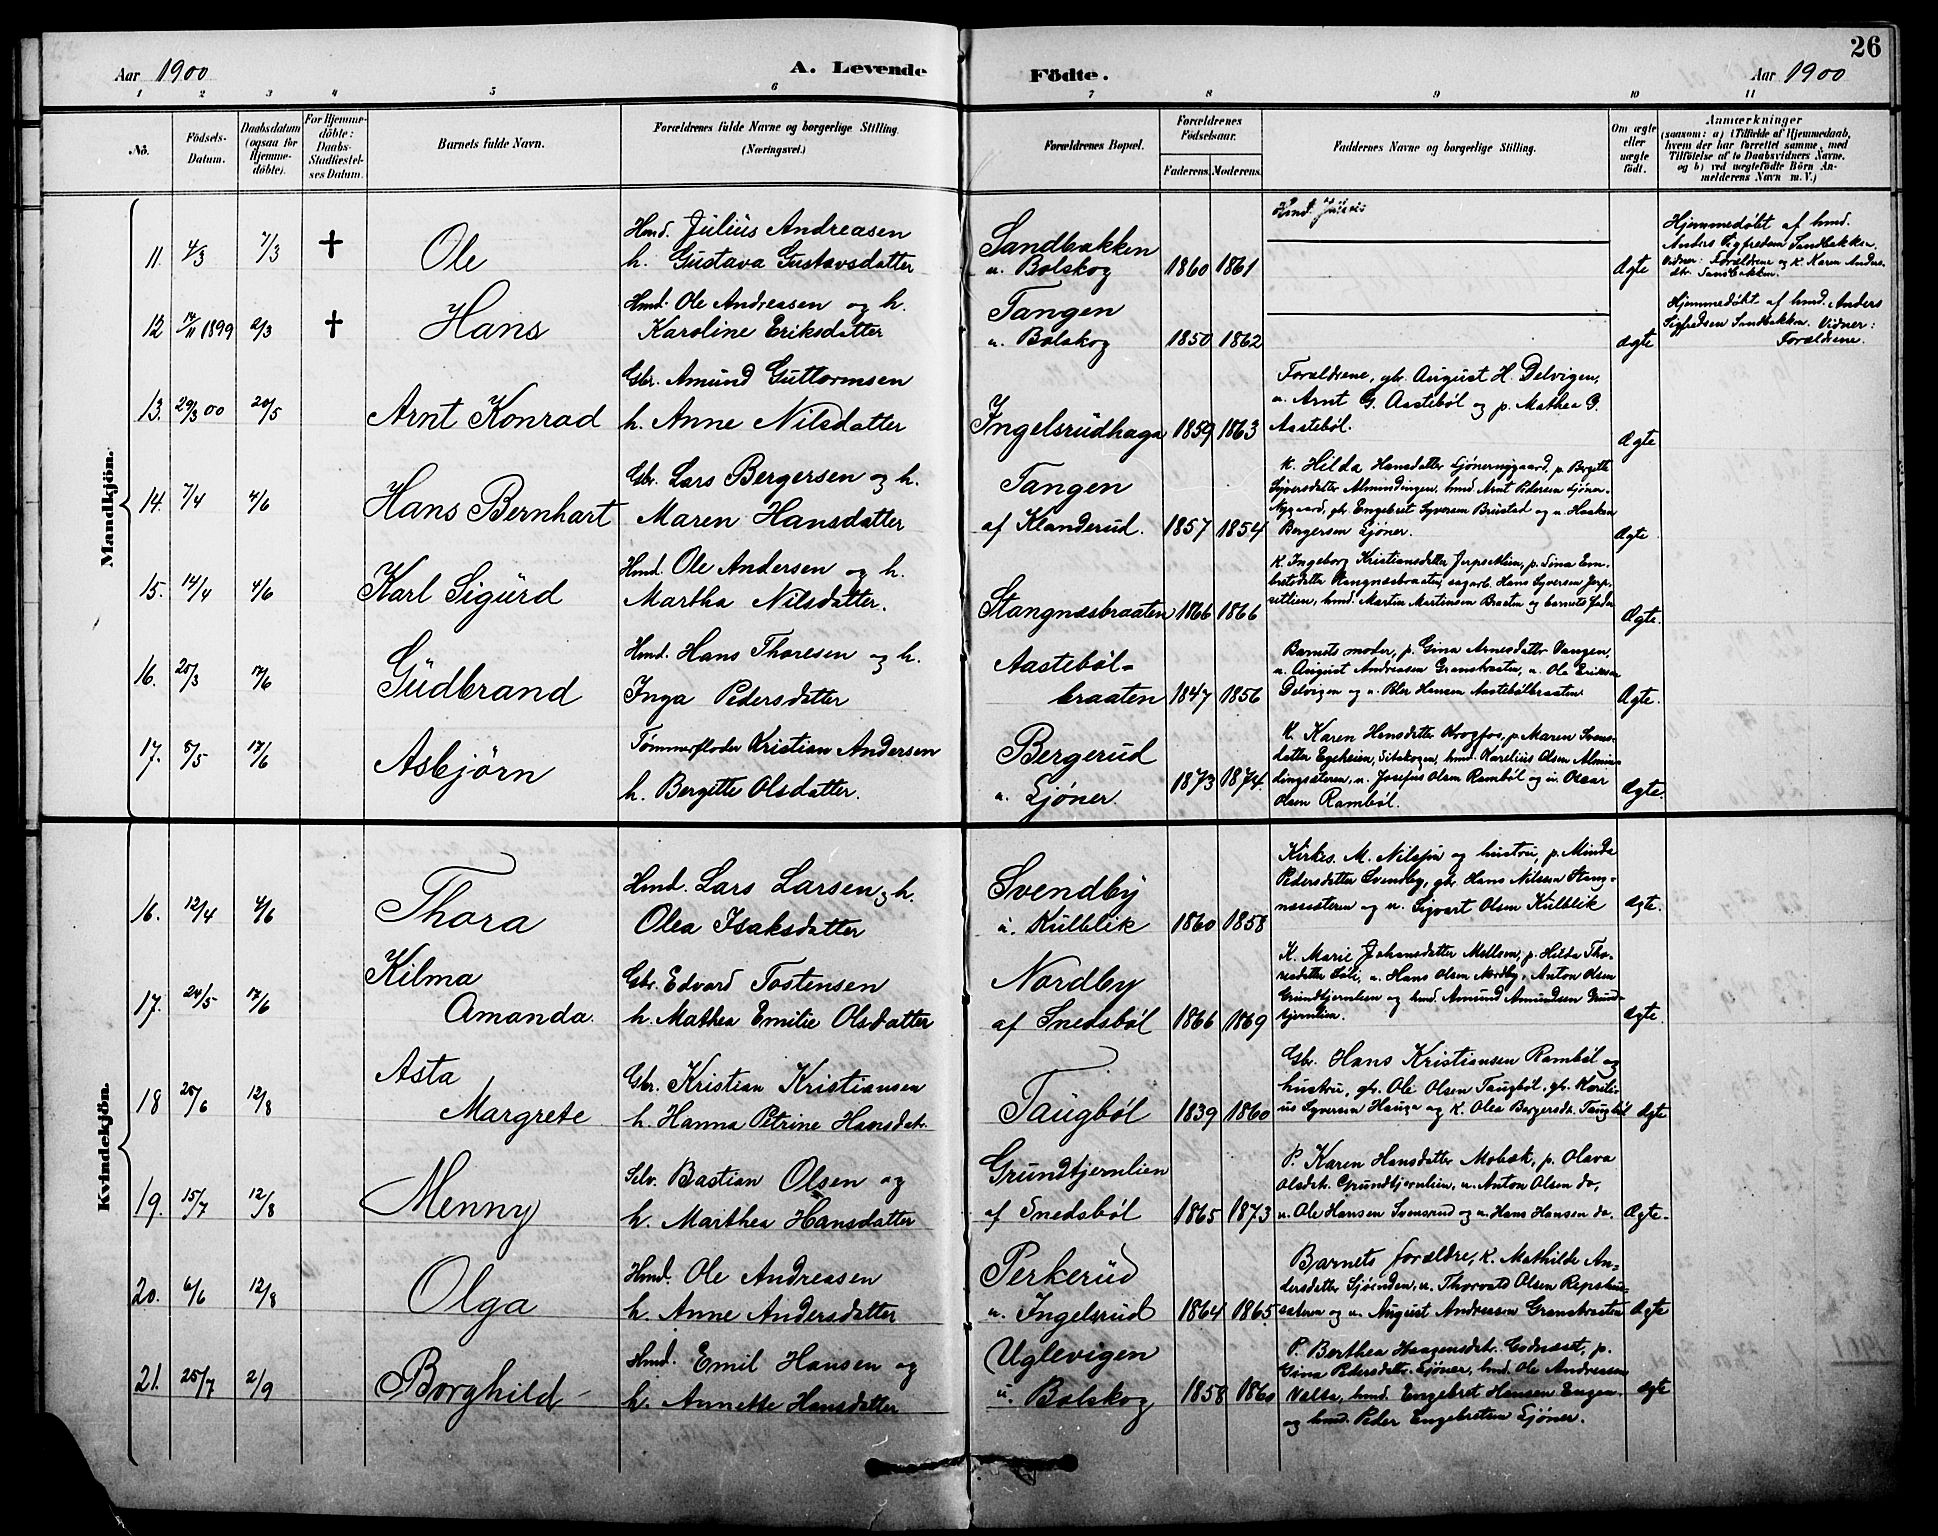 26
Aar 1900
A. Levende
Födte.
Aar 1900
1 2 3 4 5 6 7 8 9 10 11
No.
Födsels-
Datum.
Daabsdatum
(ogsaa for
Hjemme-
döbte).
For Hjemme-
döbte:
Daabs-
Stadfæstel-
ses Datum.
Barnets fulde Navn.
Forældrenes fulde Navne og borgerlige Stilling.
(Næringsvei.)
Forældrenes Bopæl.
Forældrenes
Födselsaar.
Faderens. Moderens.
Faddernes Navne og borgerlige Stilling.
Om ægte
eller
uægte
födt.
Anmærkninger
(saasom: a) i Tilfælde af Hjemmedaab,
hvem der har forrettet samme, med
Tilföielse af to Daabsvidners Navne,
og b) ved uægtefödte Börn An-
melderens Navn m. V.)
Mandkjön.
11. 4/3 7/3 † Ole
Hmd. Julius Andreasen
h. Gustava Gustavsdatter
Sandbakken
u. Bolskog 1860 1861
Hmd. Julius
Ægte
Hjemmedøbt af hmd.
Anders Sigfredsen Sandbakken.
Vidner: Forældrene og K. Karen Anders-
dtr. Sandbakken.
12 14/11 1899 2/3 † Hans
Hmd. Ole Andreasen og h.
Karoline Eriksdatter
Tangen
u. Bolskog 1850 1862
Ægte
Hjemmedøbt af hmd. Anders
Sigfredsen Sandbakken. Vidner:
Forældrene.
13. 29/3 00 20/5 Arnt Konrad
Gbr. Amund Guttormsen
h. Anne Nilsdatter
Ingelsrudhaga 1859 1863
Forældrene, gbr. August H. Delvigen,
u. Arnt G. Aastebøl og p. Mathea G.
Aastebøl.
Ægte
14. 7/4 4/6 Hans Bernhart
Gbr. Lars Bergersen og h.
Maren Hansdatter
Tangen
af Klanderud. 1857 1854
K. Hilda Hansdatter Sjønernygaard, p. Bergitte
Syversdatter Almindingen, hmd. Arnt Pedersen Sjøner-
Nygaard, gbr. Engebret Syversen Brustad og u. Haaken
Bergersen Sjøner.
Ægte
15. 14/4 4/6 Karl Sigurd
Hmd. Ole Andersen og h.
Martha Nilsdatter.
Stangnæsbraaten 1866 1866
K. Ingeborg Kristiansdatter Jerpsetlien, p. Lina Em-
bretsdatter Stangnæsbraaten, sagarb. Hans Syversen Jerp-
setlien, hmd. Martin Martinsen Braaten og barnets fader
Ægte.
16. 25/3 17/6 Gudbrand
Hmd. Hans Thoresen og h.
Inga Pedersdatter
Aastebøl-
braaten 1847 1856
Barnets moder, p. Gina Arnesdatter Vangen,
u. August Andreasen Granebraaten, u. Ole Eriksen
Delvigen og u. Peter Hansen Aastebølbraaten
Ægte.
17. 8/5 17/6 Asbjörn
Tømmerfløder Kristian Andersen
h. Bergitte Olsdatter.
Bergerud
u. Sjöner. 1873 1874.
K. Karen Hansdatter Krogfos, p. Maren Svens-
datter Egeheien, Sitskogen, hmd. Karelius Olsen Almin-
dingsæteren, u. Josefus Olsen Rambøl og u. Oscar
Olsen Rambøl.
Ægte.
Kvindekjön.
16. 12/4 4/6 Thora
Hmd. Lars Larsen og h.
Olea Isaksdatter
Svendby
u. Kulblik 1860 1858
Kirkes. M. Nilsen og hustru, p. Minda
Pedersdatter Svendby, gbr. Hans Nilsen Stang-
næssæteren og u. Sigvart Olsen Kulblik
Ægte.
17. 24/5 17/6 Kilma
Amanda.
Gbr. Edvard Tostensen
h. Mathea Emilie Olsdatter
Nordby
af Snedsböl 1866 1869
K. Marie Johansdatter Mellom, p. Hilda Tho-
resdatter Solie, u. Hans Olsen Nordby, Anton Olsen
Grundtjernlien og hmd. Amund Amundsen Grund-
tjernlien.
Ægte.
18 25/6 12/8 Asta
Margrete
Gbr. Kristian Kristiansen
h. Hanna Petrine Hansdatr.
Taugbøl 1839 1860
Gbr. Hans Kristiansen Rambøl og
hustru, gbr. Ole Olsen Taugbøl, gbr. Kareli-
us Syversen Hauga og K. Olea Bergersdr. Taugbøl
Ægte
19. 15/7 12/8 Menny
Selv. Bastian Olsen og
h. Marthea Hansdatter
Grundtjernlien
af Snedsböl 1865 1873
P. Karen Hansdatter Mobæk, p. Olava
Olsdatr. Grundtjernlien, u. Anton Olsen do,
u. Ole Hansen Svensrud og u. Hans Hansen do.
Ægte.
20. 6/6 12/8 Olga
Hmd. Ole Andreasen
h. Anne Andersdatter
Perkerud
u. Ingelsrud 1864 1865
Barnets forældre, K. Mathilde An-
dersdatter Sjøenden, u. Thorvald Olsen Repshus-
sæteren og u. August Andreasen Granebraaten
Ægte
21. 25/7 2/9 Borghild
Hmd. Emil Hansen og
h. Annette Hansdatter
Uglevigen
u. Bolskog 1858 1860
P. Berthea Haagensdatr. Godnæst, p.
Gina Pedersdatr. Sjöner, hmd. Ole Andreasen
hmd. Engebret Hansen Engen
og hmd. Peder Engebretsen Sjöner.
Ægte